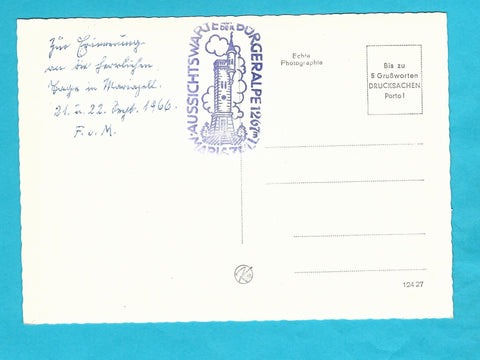 Zur Erinnerung
an die herrlichen
Tage in Mariazell.
21. u. 22. Sept. 1966.
F. u. M.
AUSSICHTSWARTE AUF DER BÜRGERALPE 1267m
MARIAZELL
Echte
Photographie
Bis zu
5 Grußworten
DRUCKSACHEN
Porto!
124 27